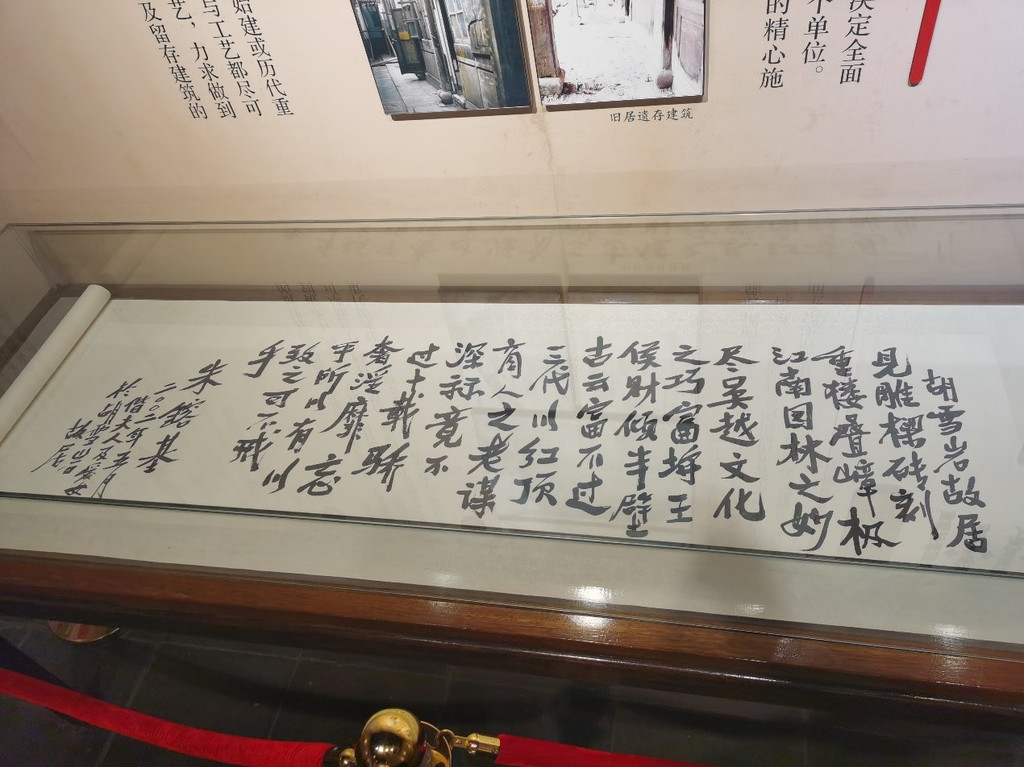 决定全面
个单位。
的精心施
始建或历代重
与工艺都尽可
艺，力求做到
及留存建筑的
旧居遗存建筑
胡雪岩故居
见雕樑砖刻
重楼叠嶂极
江南园林之妙
尽吴越文化
之巧富埒王
侯财倾半壁
古云富不过
三代以红顶
商人之老谋
深祘竟不
过十载骄
奢淫靡忘
乎所以有以
致之可不戒
乎
朱镕基
二〇〇二年
偕夫人
故居